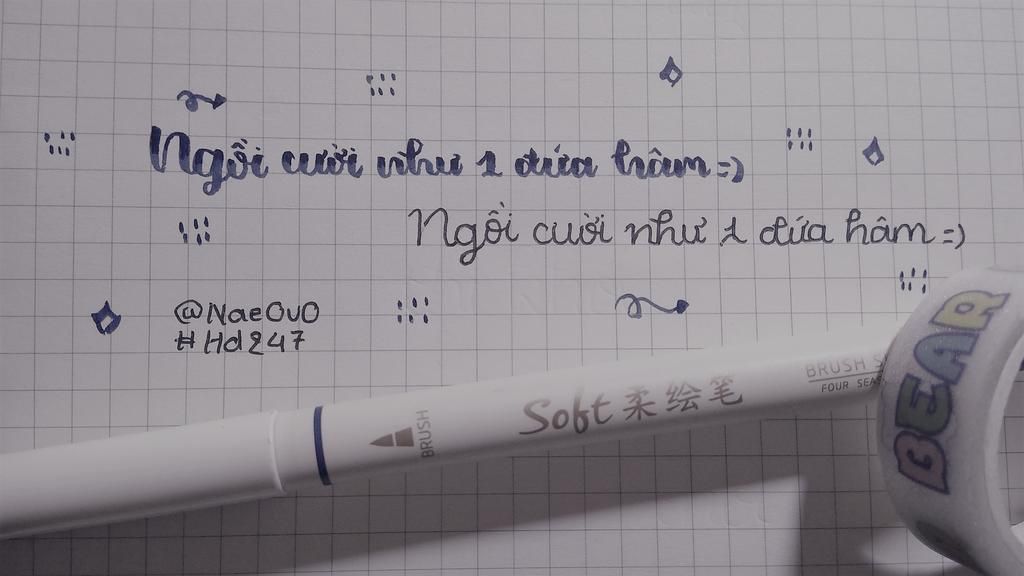 Ngồi cười như 1 đứa hâm =)
Ngồi cười như 1 đứa hâm =)
@NaeOvO
#Hd247
BRUSH
Soft 柔绘笔
BRUSH
FOUR
BEAR